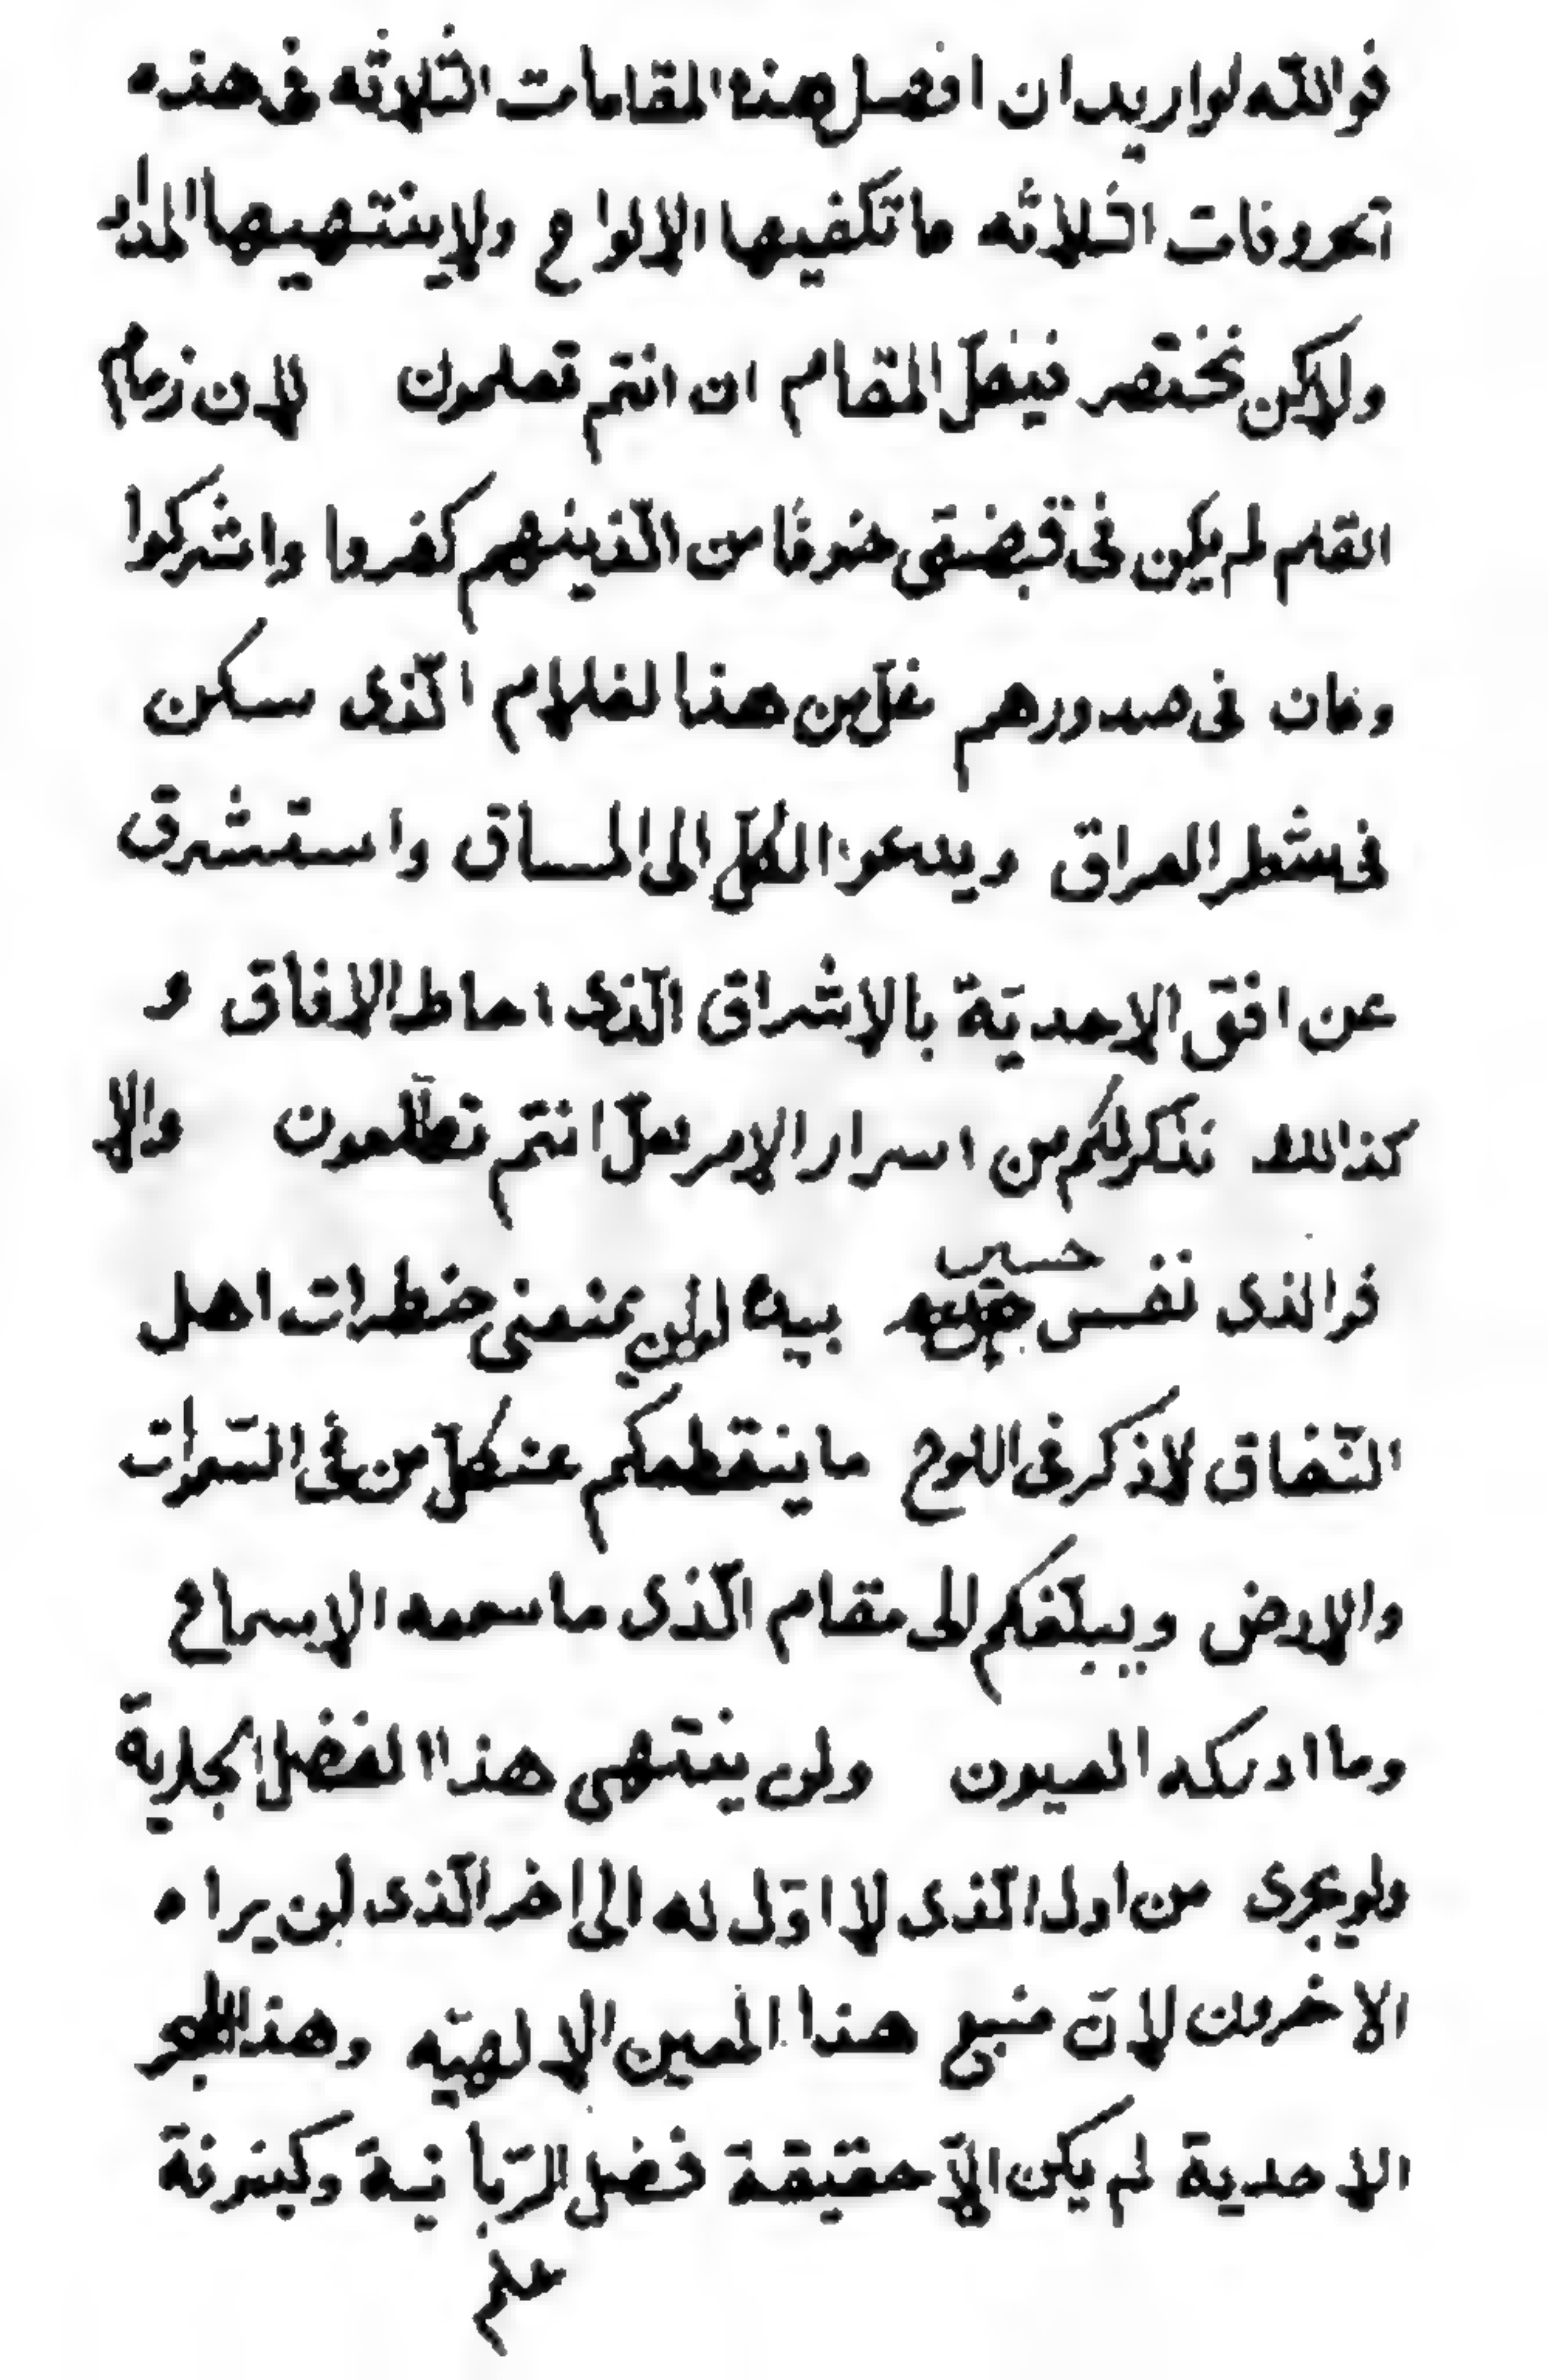 فوالله لواريد ان افصل هذه المقامات الثلاثه فى هذه
الحروفات الثلاثه ماتكفيها الالواح ولاينتهيها المداد
ولاكن نختصر فيفصل المقام ان انتم تعلمون لان زمام
القلم لم يكن فى قبضتى خوفًا من الّذينهم كفروا واشركوا
وكان فى صدورهم غلّ من هذا لغلام الّذى سكن
فى شطر العراق ويدعوا الكلّ الى المساق واستشرق
عن افق الاحديّة بالاشراق الّذى احاط الافاق و
كذالك نذكر لكم من اسرار الامر لعلّ انتم تطّلعون والا
فوالذى نفس حسين بيده لولن يمنعنى خطرات اهل
النّفاق لاذكر فى اللوح ما ينقطعكم عن كلّ من فى السّموات
والارض ويبلّغكم الى مقام الّذى ما سمعه الاسماع
وما ادركه العيون ولن ينتهى هذا الفضل الجارية
ولو يجرى من اول الّذى لا اوّل له الى اخر الّذى لن يراه
الاخرون لانّ منبع هذا المعين الالهيّه وهذا البحر
الاحدية لم يكن الّا حقيقة فضل الرّبانية وكينونة
علم